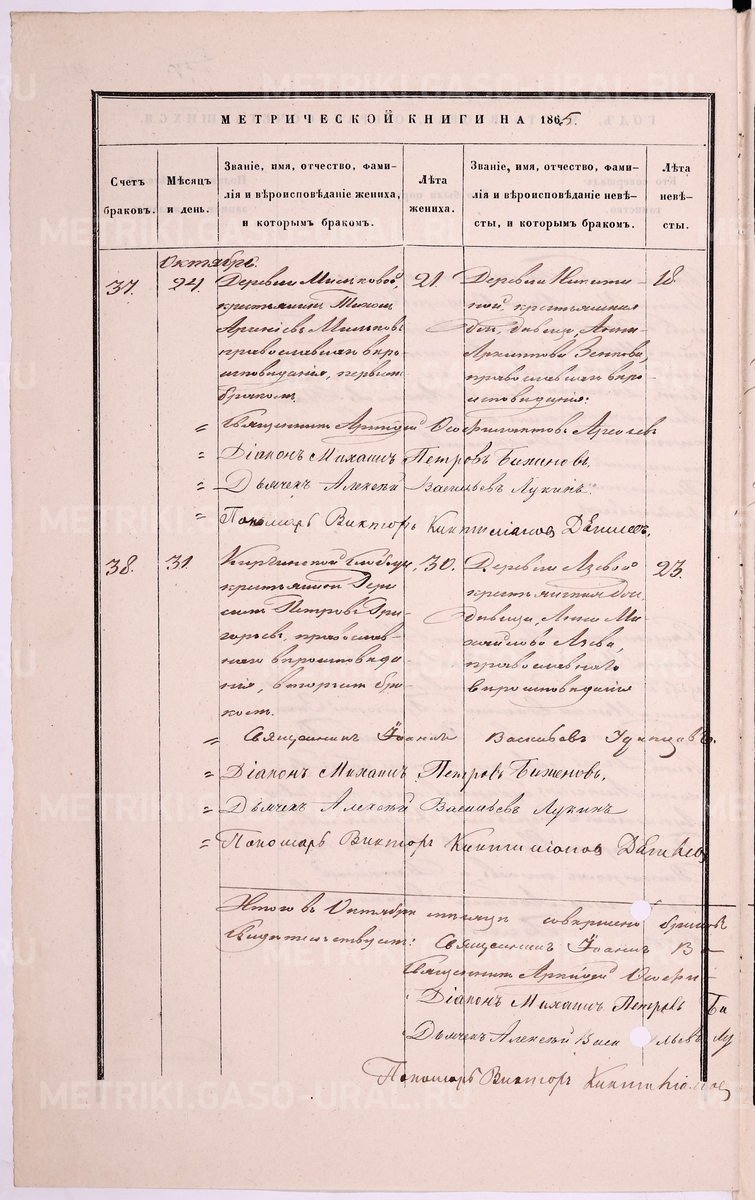 МЕТРИЧЕСКОЙ КНИГИ НА 1865.
Счетъ браковъ.
Мѣсяцъ и день.
Званіе, имя, отчество, фами-
лія и вѣроисповѣданіе жениха,
и которымъ бракомъ.
Лѣта жениха.
Званіе, имя, отчество, фами-
лія и вѣроисповѣданіе невѣ-
сты, и которымъ бракомъ.
Лѣта невѣ-
сты.
Октябрь.
37.
24.
Деревни Мильковой,
крестьянинъ
Мильковъ
православнаго вѣро-
исповѣданія, первымъ
бракомъ.
21.
Деревни Никити-
ной, крестьянская
дѣвица, Анна
православнаго вѣро-
исповѣданія.
18.
Священникъ Аркадій
Діаконъ Михаилъ Петровъ Баженовъ.
Дьячекъ Алексѣй Васильевъ Лукинъ.
Пономарь Викторъ
38.
31.
Киргинской слободы,
крестьянинъ
Петровъ Гри-
горьевъ, православ-
наго вѣроисповѣда-
нія, вторымъ бра-
комъ.
30.
Деревни Язевой
крестьянская
дѣвица, Анна Ми-
хайлова Язева,
православнаго
вѣроисповѣданія
23.
Священникъ Іоаннъ Васильевъ Удинцевъ.
Діаконъ Михаилъ Петровъ Баженовъ.
Дьячекъ Алексѣй Васильевъ Лукинъ
Пономарь Викторъ
Итого въ Октябрѣ мѣсяцѣ совершено браковъ
Священникъ Іоаннъ Ва
Священникъ Аркадій
Діаконъ Михаилъ Петровъ Ба
Дьячекъ Алексѣй Васильевъ Лу
Пономарь Викторъ
METRIKI.GASO-URAL.RU